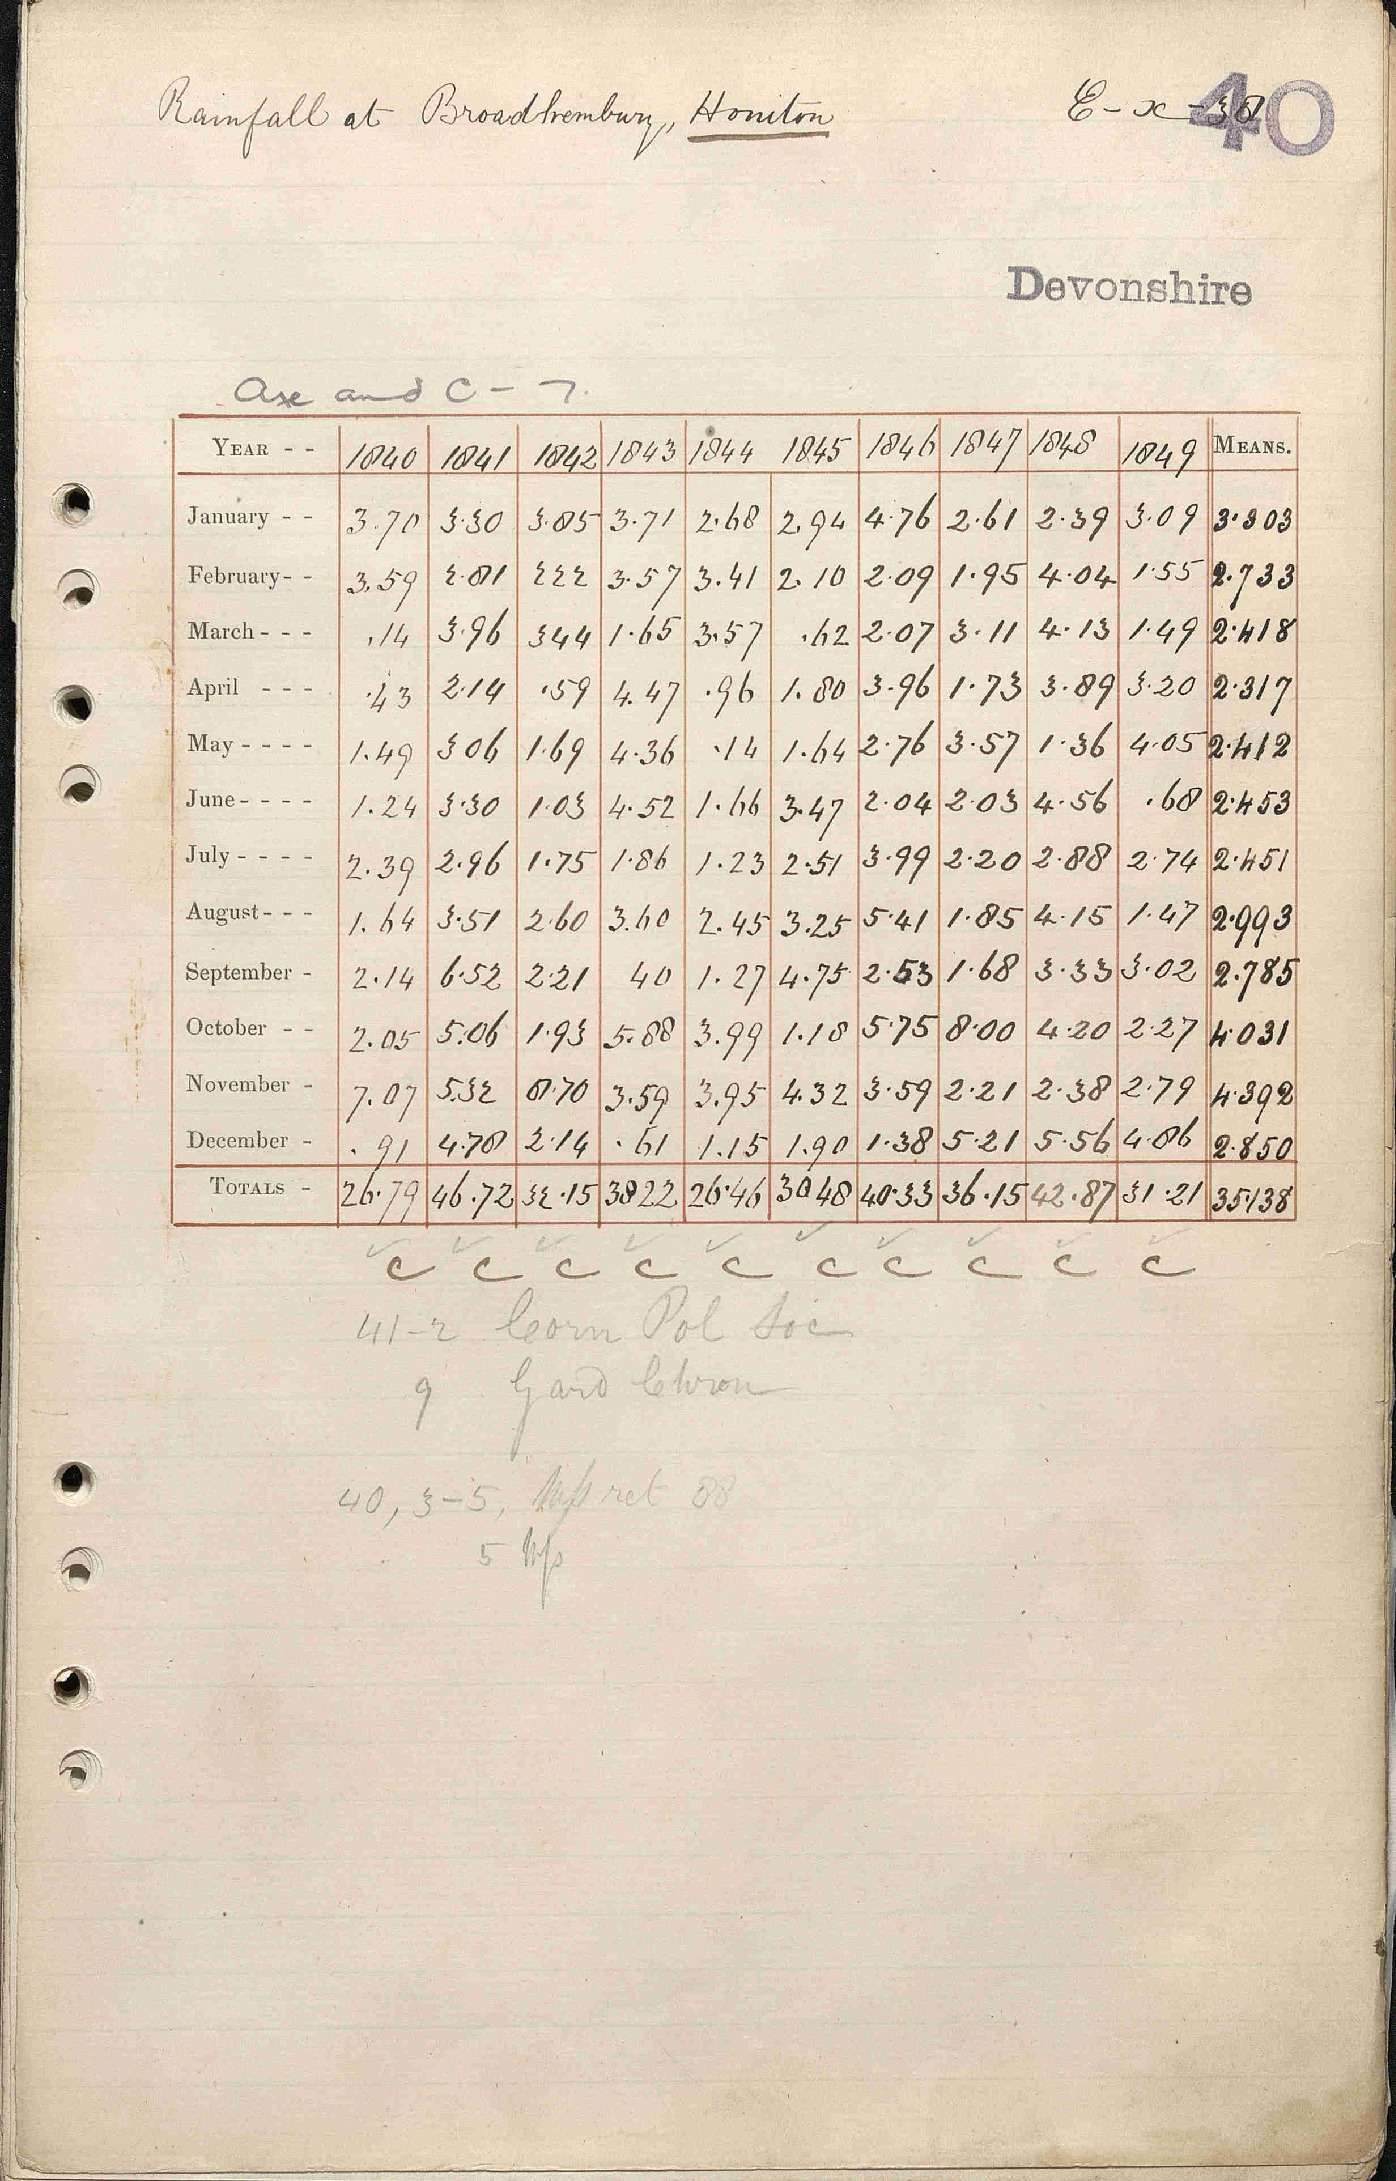 Rainfall at Broadhembury, Honiton
E-x-38
40
Devonshire
Axe and C - 7.
YEAR - - 1840 1841 1842 1843 1844 1845 1846 1847 1848 1849 MEANS.
January - - 3.70 3.30 3.85 3.71 2.68 2.94 4.76 2.61 2.39 3.09 3.303
February - - 3.59 2.81 222 3.57 3.41 2.10 2.09 1.95 4.04 1.55 2.733
March - - - .14 3.96 344 1.65 3.57 .62 2.07 3.11 4.13 1.49 2.418
April - - - .43 2.14 .59 4.47 .96 1.80 3.96 1.73 3.89 3.20 2.317
May - - - - 1.49 306 1.69 4.36 .14 1.64 2.76 3.57 1.36 4.05 2.412
June - - - - 1.24 3.30 1.03 4.52 1.66 3.47 2.04 2.03 4.56 .68 2.453
July - - - - 2.39 2.96 1.75 1.86 1.23 2.51 3.99 2.20 2.88 2.74 2.451
August - - - 1.64 3.51 2.60 3.60 2.45 3.25 5.41 1.85 4.15 1.47 2.993
September - 2.14 6.52 2.21 40 1.27 4.75 2.53 1.68 3.33 3.02 2.785
October - - 2.05 5.06 1.93 5.88 3.99 1.18 5.75 8.00 4.20 2.27 4.031
November - 7.07 5.32 8.70 3.59 3.95 4.32 3.59 2.21 2.38 2.79 4.392
December - .91 4.78 2.14 .61 1.15 1.90 1.38 5.21 5.56 4.86 2.850
TOTALS - 26.79 46.72 32.15 38 22 26.46 30 48 40.33 36.15 42.87 31.21 35.138
C C C C C C C C C C
41-2 Corn Pol Soc
9 Gard Chron
40, 3-5, Mss ret 88
5 Mss